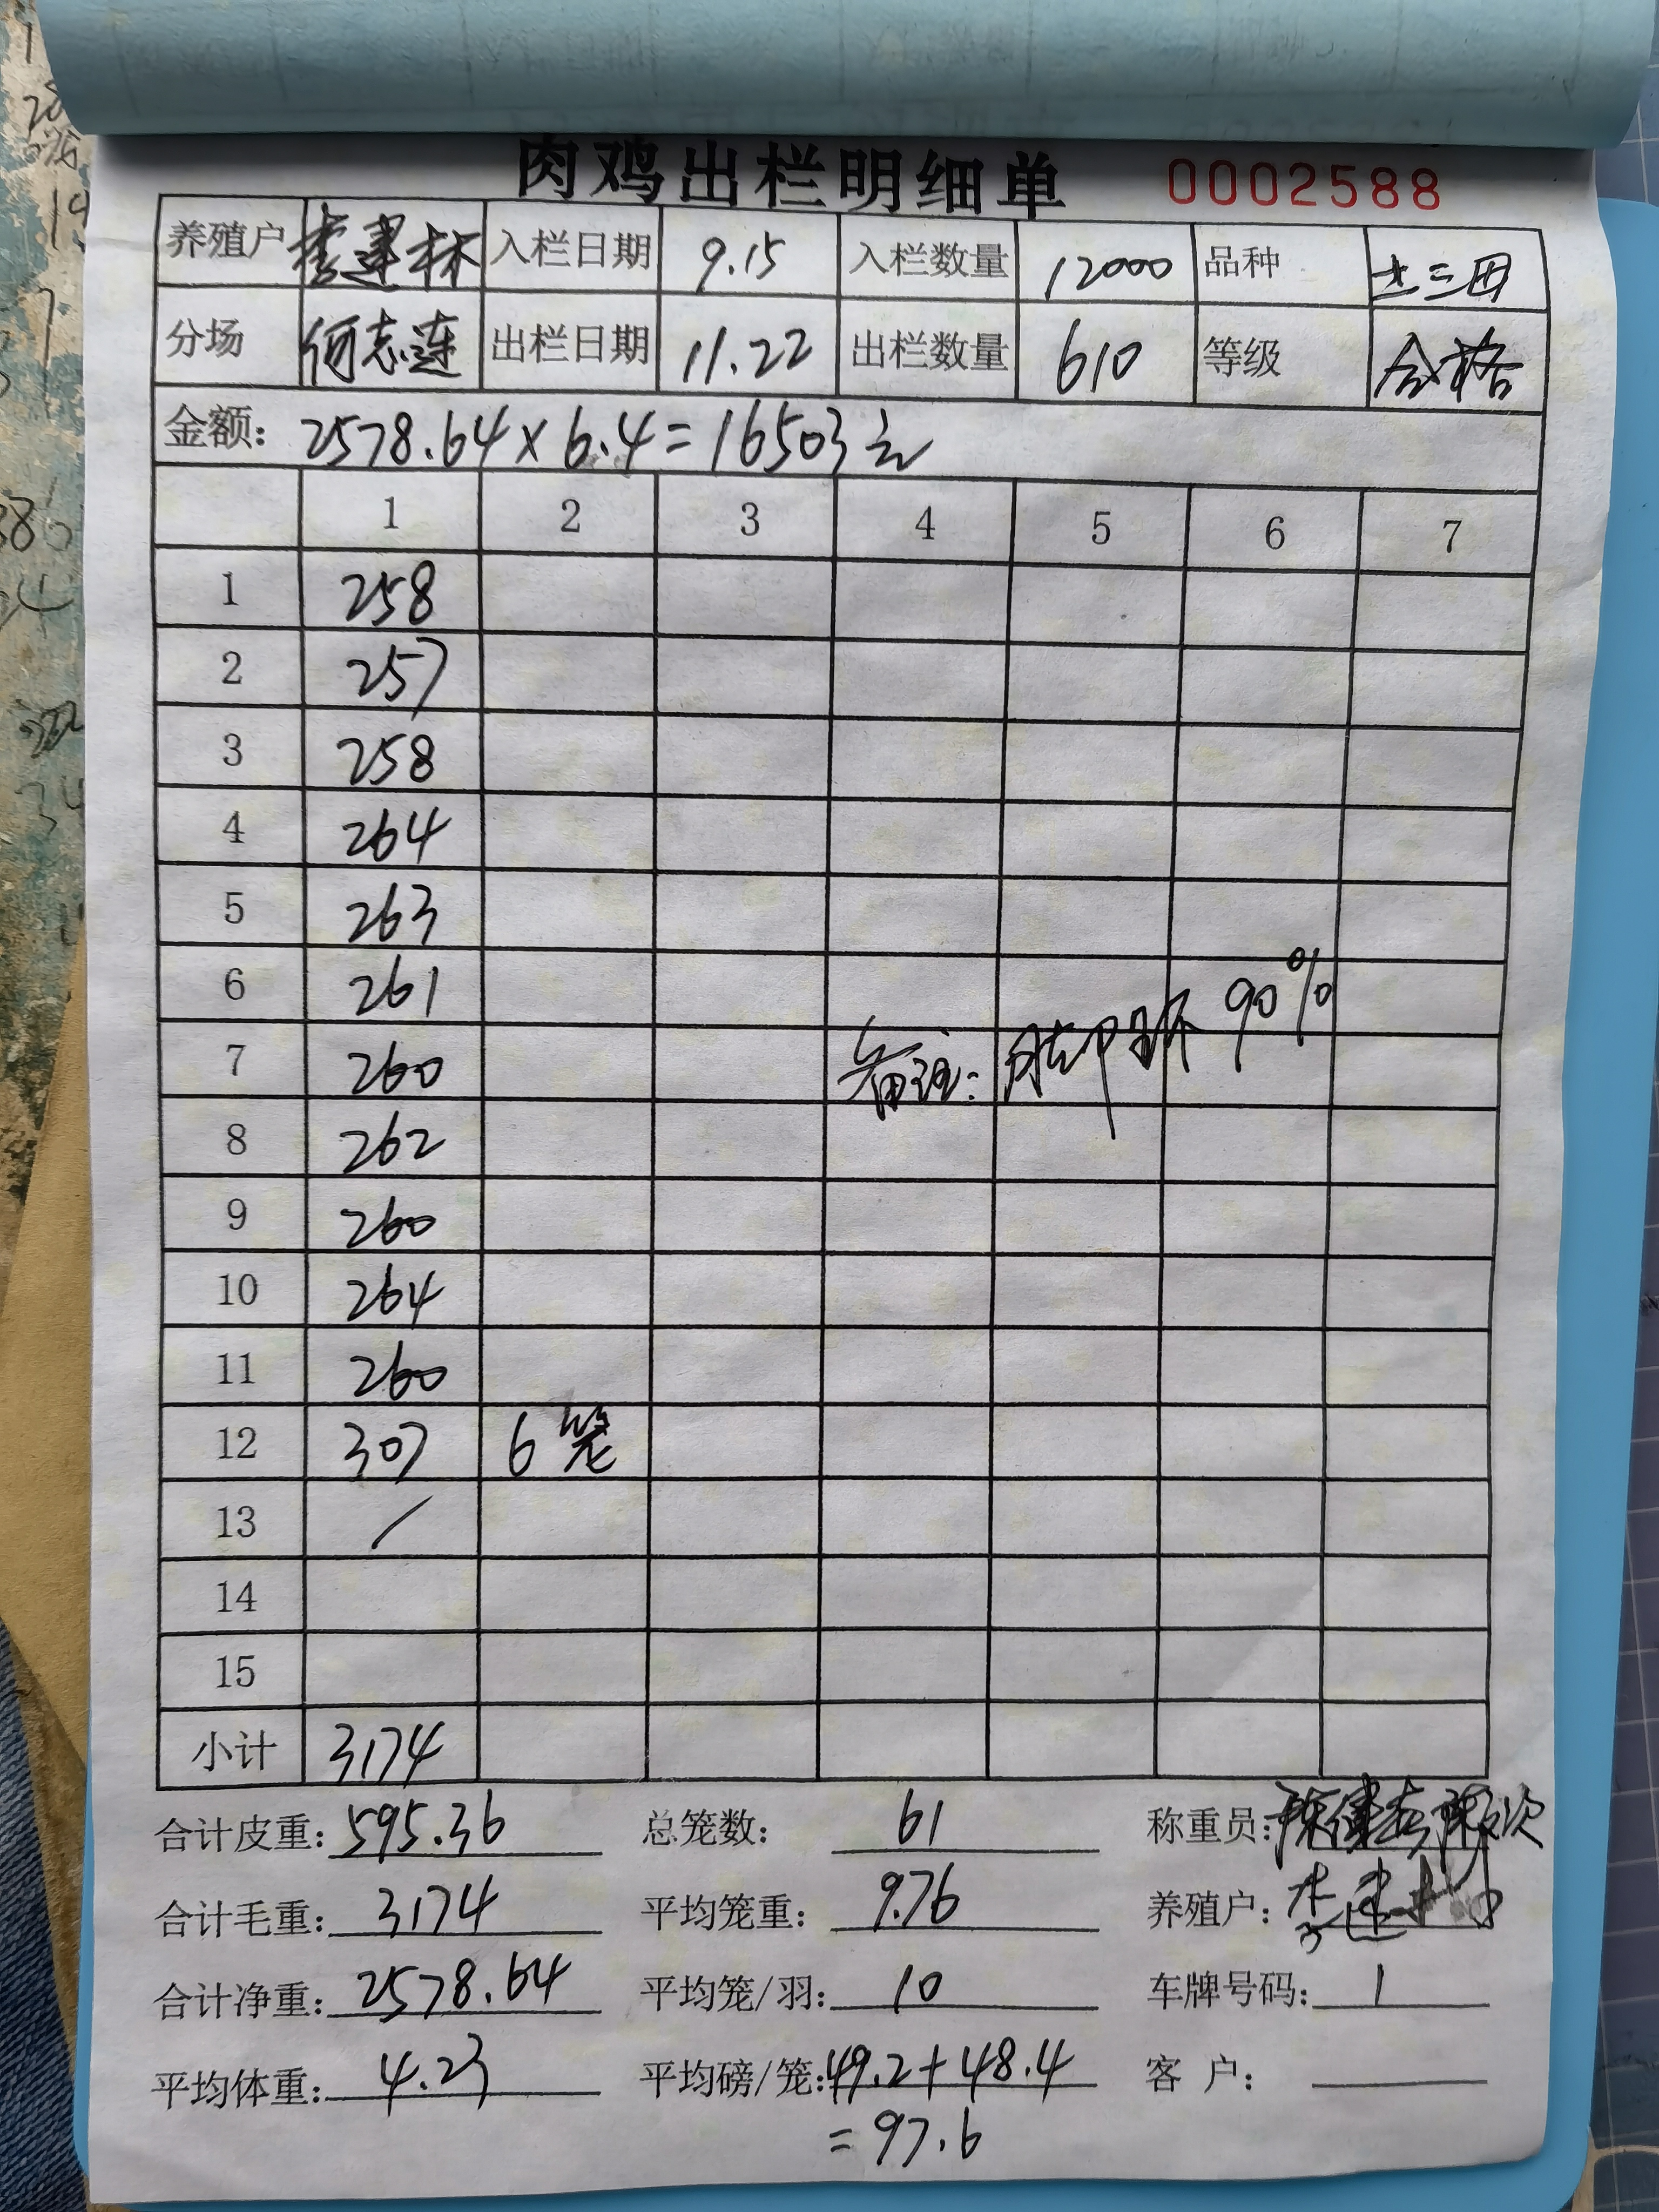 肉鸡出栏明细单 0002588
养殖户 李建林 入栏日期 9.15 入栏数量 12000 品种 土三田
分场 何志莲 出栏日期 11.22 出栏数量 610 等级 合格
金额: 2578.64×6.4=16503元
1 2 3 4 5 6 7
1 258
2 257
3 258
4 264
5 263
6 261
7 260
备注: 脚环 90%
8 262
9 260
10 264
11 260
12 307 6笼
13 /
14
15
小计 3174
合计皮重: 595.36 总笼数: 61 称重员:
合计毛重: 3174 平均笼重: 9.76 养殖户: 李建林
合计净重: 2578.64 平均笼/羽: 10 车牌号码: 1
平均体重: 4.23 平均磅/笼: 49.2+48.4 客 户:
=97.6